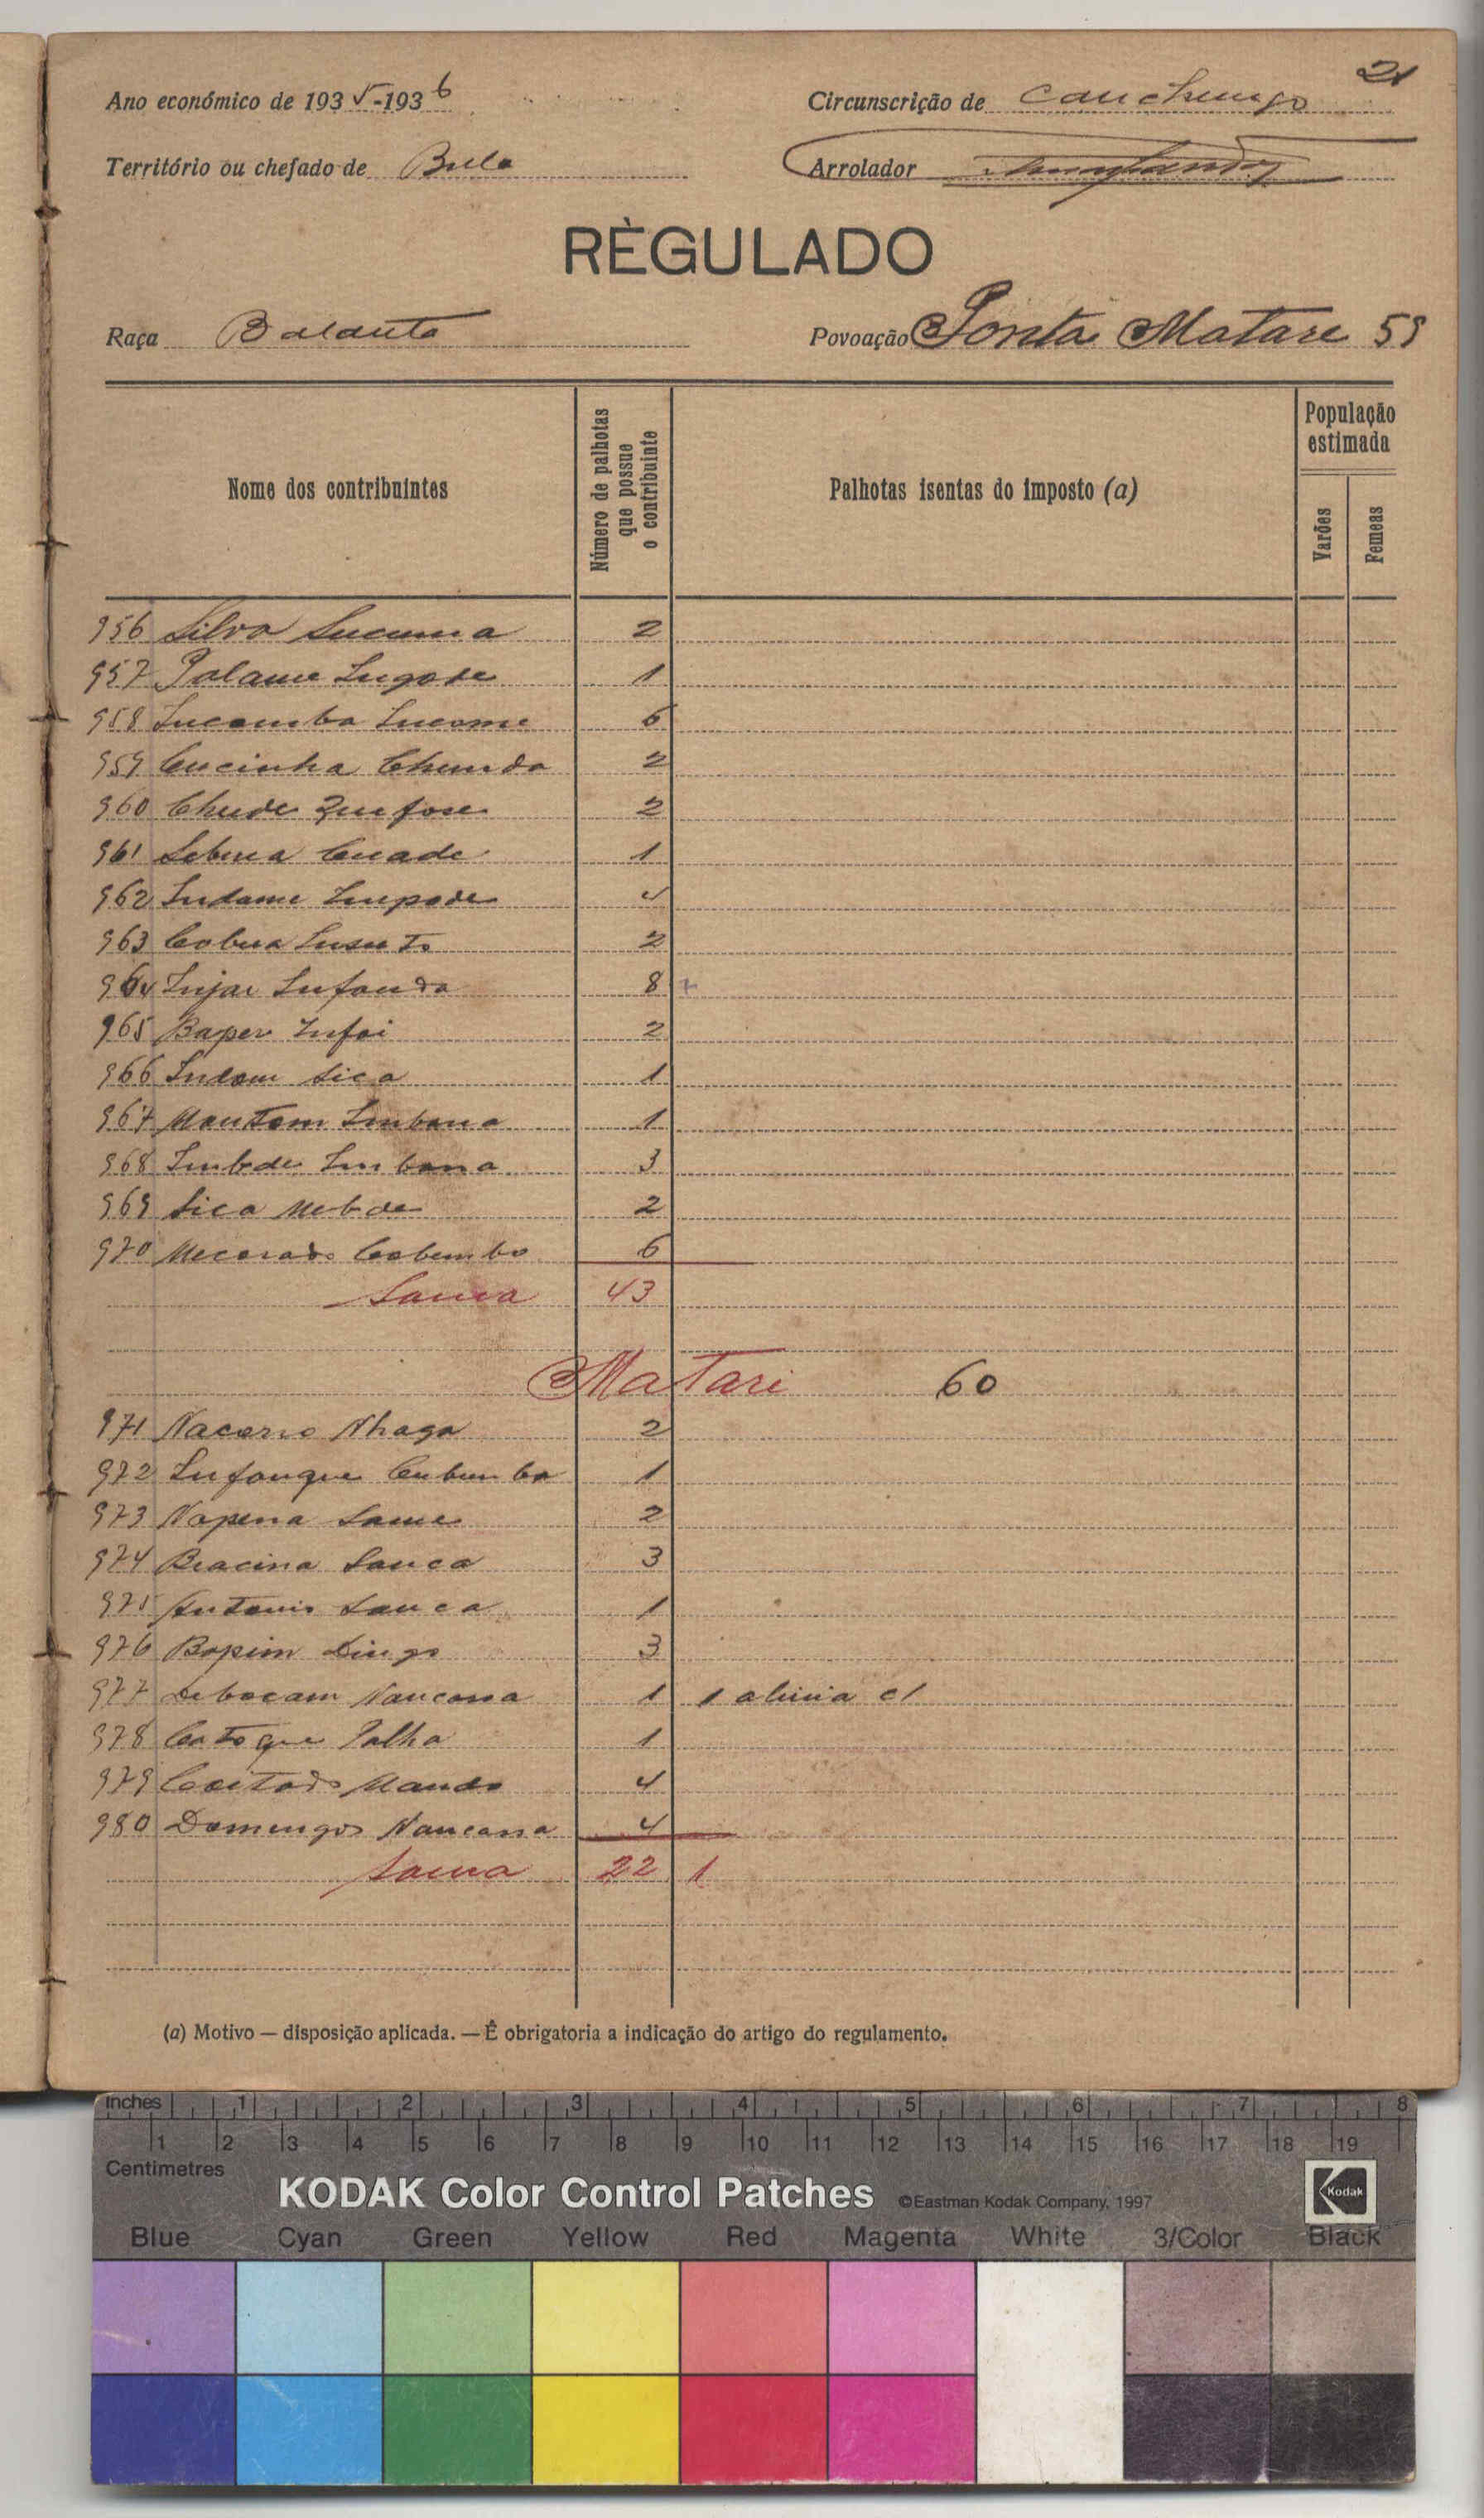 21
Ano económico de 1935-1936 Circunscrição de Canchungo
Território ou chefado de Bula Arrolador
RÈGULADO
Raça Balanta Povoação Ponta Matare 59
Nome dos contribuintes
Número de palhotas que possue o contribuinte
Palhotas isentas do imposto (a)
População estimada
Varões
Femeas
956 Silva Sucuma 2
957 Palame Lugode 1
958 6
959 Cucinha Chumda 2
960 Chude Quefose 2
961 Cuade 1
962 4
963 2
964 8 +
965 Baper Infai 2
966 Sica 1
967 Mantam Imbana 1
968 Imbde Imbana 3
969 Sica Mebde 2
970 Mecarado Cabumbo 6
Soma 43
Matari 60
971 Nhaga 2
972 Infanque Cubumba 1
973 Napena Same 2
974 Bracina Sanca 3
975 Antonio Sanca 1
976 Bapim Dingo 3
977 Debocam Nancassa 1 1 alinia c/
978 Catoque Palha 1
979 Coitado Mando 4
980 Domingos Nancassa 4
Soma 22 1
(a) Motivo — disposição aplicada. — É obrigatoria a indicação do artigo do regulamento.
Inches 1 2 3 4 5 6 7 8
1 2 3 4 5 6 7 8 9 10 11 12 13 14 15 16 17 18 19
Centimetres
KODAK Color Control Patches ©Eastman Kodak Company, 1997 Kodak
Blue Cyan Green Yellow Red Magenta White 3/Color Black